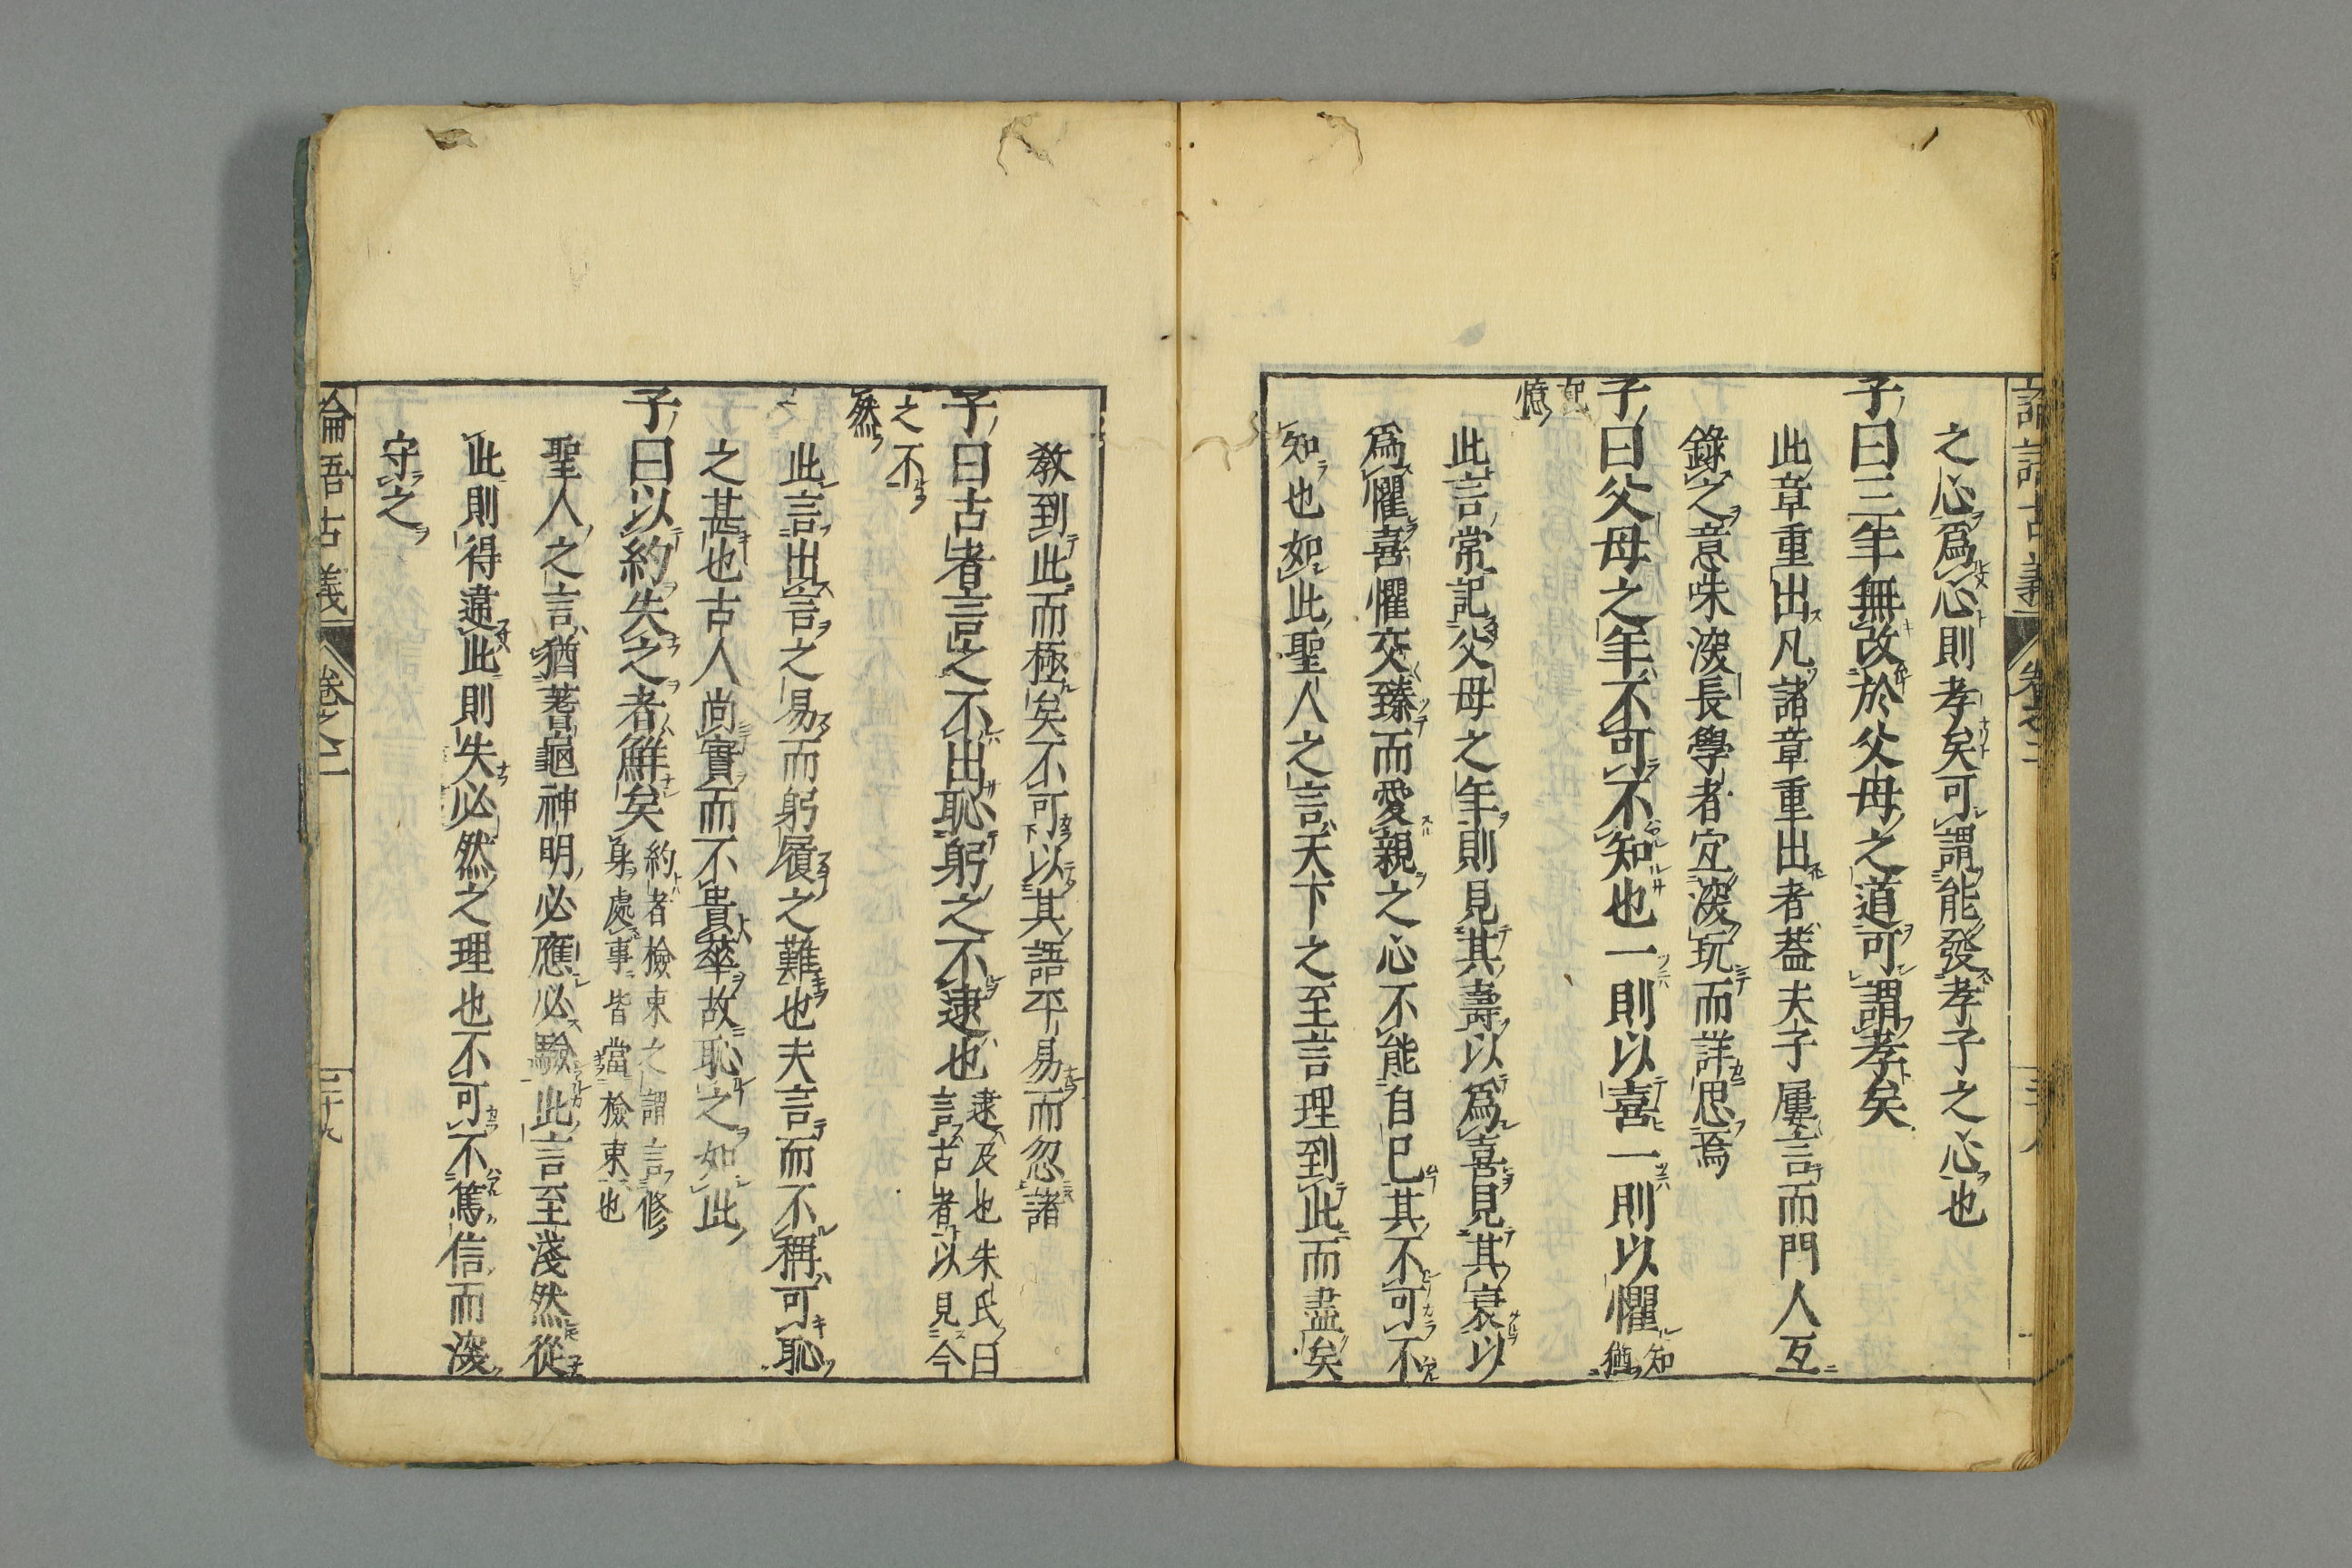 論語古義 卷之二 三十八
之心爲心則孝矣可謂能發孝子之心也
子曰三年無改於父母之道可謂孝矣
此章重出凡諸章重出者蓋夫子屢言而門人互
錄之意味深長學者宜深玩而詳思焉
子曰父母之年不可不知也一則以喜一則以懼知猶
記
憶
此言常記父母之年則見其壽以爲喜見其衰以
爲懼喜懼交臻而愛親之心不能自已其不可不
知也如此聖人之言天下之至言理到此而盡矣
教到此而極矣不可以其語平易而忽諸
子曰古者言之不出恥躬之不逮也逮及也朱氏曰
言古者以見今
之不
然
此言出言之易而躬履之難也夫言而不稱可恥
之甚也古人尚實而不貴華故恥之如此
子曰以約失之者鮮矣約者檢束之謂言修
身處事皆當檢束也
聖人之言猶蓍龜神明必應必驗此言至淺然從
此則得違此則失必然之理也不可不篤信而深
守之
論語古義 卷之二 三十九